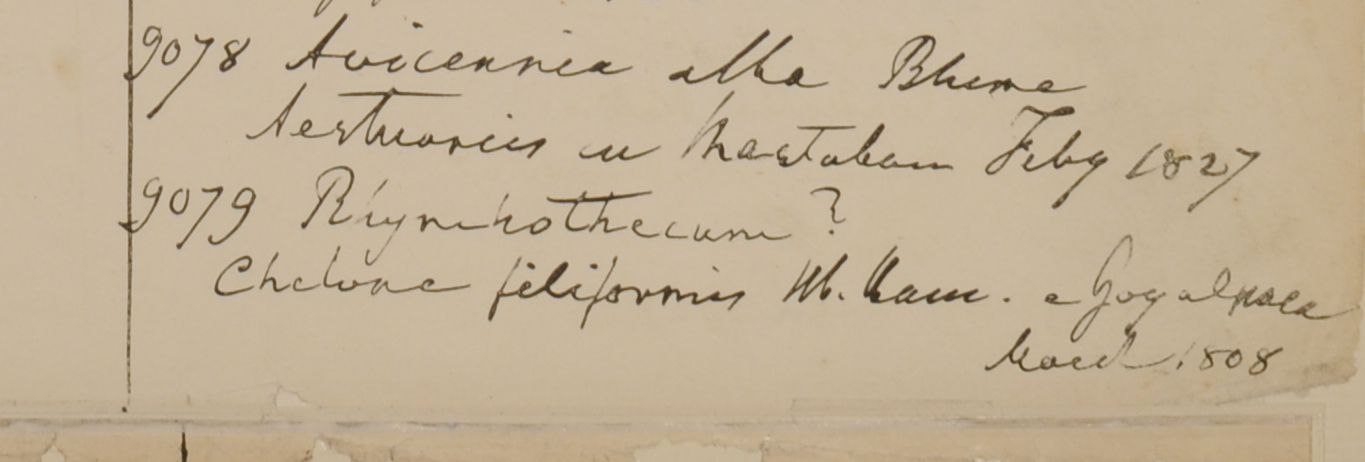 9078 Avicennia alba Blume
Aestuariis in Martaban Feby 1827
9079 Rhynchothecum ?
Chelone filiformis Hb. Ham. e Goyalpara
March 1808